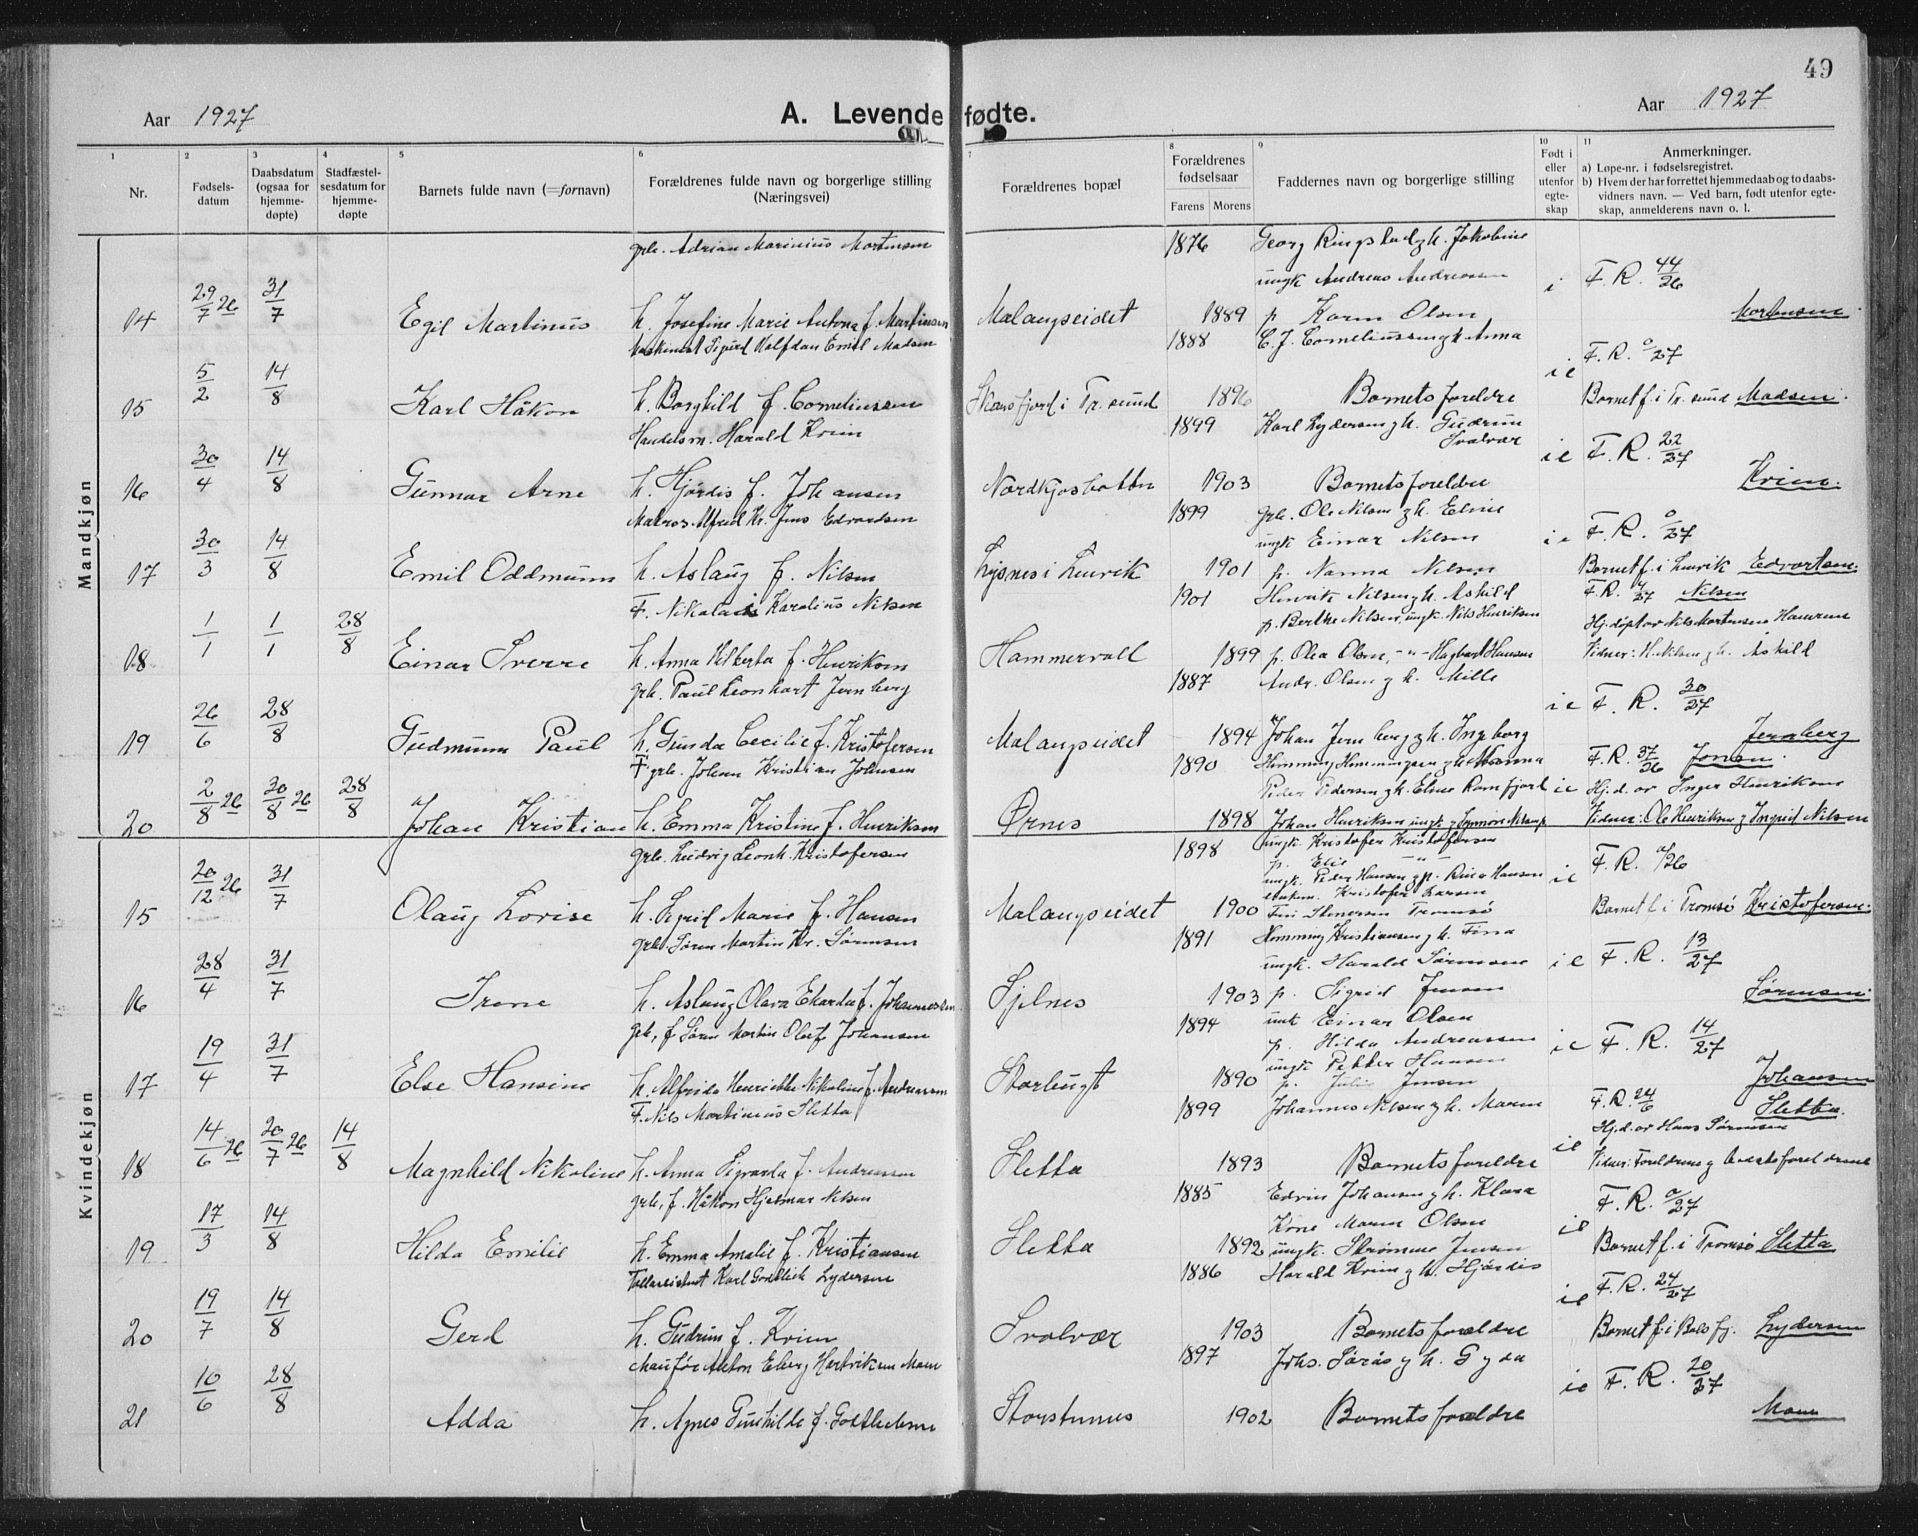 49
Aar 1927
A. Levende fødte.
Aar 1927
1 Nr.
2 Fødsels-datum
3 Daabsdatum (ogsaa for hjemme-døpte)
4 Stadfæstel-sesdatum for hjemme-døpte
5 Barnets fulde navn (=fornavn)
6 Forældrenes fulde navn og borgerlige stilling (Næringsvei)
7 Forældrenes bopæl
8 Forældrenes fødselsaar
Farens Morens
9 Faddernes navn og borgerlige stilling
10 Født i eller utenfor egte-skap
11 Anmerkninger.
a) Løpe-nr. i fødselsregistret.
b) Hvem der har forrettet hjemmedaab og to daabs-vidners navn. — Ved barn, født utenfor egte-skap, anmelderens navn o. l.
Mandkjøn
grb. Adrian Marinius Mortensen 1876 Georg Ringstad g h. Jakobine
ungk Andreas Andreassen
14 29/7 26 31/7 Egil Martinus h. Josefine Marie Antona f. Martinsen Malangseidet 1889 p Karen Olsen i F. R. 44/26 Mortensen
Maskinist Sigurd Halfdan Emil Madsen 1888 C. J. Corneliussen g h Anna F. R. 0/27
15 5/2 14/8 Karl Håkon h. Borghild f. Corneliussen Skarsfjord i Tr. sund 1896 Barnets foreldre i e Barnet f. i Tr. sund Madsen.
Handelsm. Harald Krim 1899 Karl Lydersen g h. Gudrun
Svolvær
16 30/4 14/8 Gunnar Arne h. Hjørdis f. Johansen Nordkjosbotten 1903 Barnets foreldre i e F. R. 22/27 Krim.
Matros Alfred Kr. Jens Edvardsen 1899 grb. Ole Nilsen g h. Eline
ungk Einar Nilsen
17 30/3 14/8 Emil Oddmunn h. Aslaug f. Nilsen Lysnes i Lenvik 1901 p. Nanna Nilsen i e F. R. 0/27 Barnet f. i Lenvik Edvartsen
F. Nikolai Karolius Nilsen 1901 Henrik Nilsen g h. Askild F. R. 4/27 Nilsen
p. Berthe Nilsen, ungk Nils Henriksen Hj. døpt av Nils Mortensen
18 1/1 1/1 28/8 Einar Sverre h. Anna Hilberta f. Henriksen Hammervoll 1899 p. Olea Olsen, -"- Hagbart Hansen Vidner: H. Nilsen g h. Askild
grb. Paul Leonhart Jernberg 1887 Andr. Olsen g h. Mille
19 26/6 28/8 Gudmunn Paul h. Gunda Cecilie f. Kristofersen Malangseidet 1894 Johan Jernberg g h. Ingborg i e F. R. 30/27 Jernberg
F. grb. Johan Kristian Johnsen 1890 Hemming Hemmingsen g h Hanna F. R. 37/26
Peder Pedersen g h. Eline Ramfjord i e Hj. d. av Inger Henriksen
20 2/8 26 30/8 26 28/8 Johan Kristian h. Emma Kristine f. Henriksen Ørnes 1898 Johan Henriksen ungk Vidner: Ole Henriksen g Ingrid Nilsen
Kvindekjøn
grb. Ludvig Leonh. Kristofersen 1898 ungk. Kristofer Kristofersen
p. Elie -"-
ungk. Peder Hansen g p. Rina Hansen
Kristofer Larsen
15 20/12 26 31/7 Olaug Lovise h. Sigrid Marie f. Hansen Malangseidet 1900 Stenersen Tromsø i e F. R. 0/26 Barnet f i Tromsø Kristofersen.
grb. Søren Martin Kr. Sørensen 1891 Hemming Kristiansen g h. Fina
ungk. Harald Sørensen
16 28/4 31/7 Irene h. Aslaug Olava f. Johannessen Sjelnes 1903 p. Sigrid Jensen i e F. R. 13/27 Sørensen.
grb, f Søren Martin Oluf Johansen 1894 unk Einar Olsen
p. Hilda Andreassen
ungk Petter Hansen
17 19/4 31/7 Else Hansine h. Alfrida Henriette Nikoline f. Andreassen Storbugt 1890 p. Julie Jensen i e F. R. 14/27 Johansen
F. Nils Martinius Sletta 1899 Johannes Nilsen g h. Maren F. R. 24/6 Sletta.
Hj. d. av Hans Sørensen
18 14/6 26 20/7 26 14/8 Magnhild Nikoline h. Anna f. Andreassen Sletta 1893 Barnets foreldre i e Vidner: Foreldrene g
grb, f. Håkon Hjelmar Nilsen 1885 Edvin Johansen g h. Klara
Kone Maren Olsen
19 17/3 14/8 Hilda Emilie h. Emma Amalie f. Kristiansen Sletta 1892 ungk. Jensen i e F. R. 0/27 Barnet f. i Tromsø Sletta
Karl Godtlieb Lydersen 1886 Harald Krim g h. Hjørdis
20 19/7 14/8 Gerd h. Gudrun f. Krim Svolvær 1903 Barnets forældre i e F. R. 24/27 Barnet f. i Balsfj. Lydersen
Anton Hartviksen 1897 Johs. Sørås g h. Gyda
21 10/6 28/8 Adda h. Agnes Gunhilde f. Storstennes 1902 Barnets forældre i e F. R. 20/27